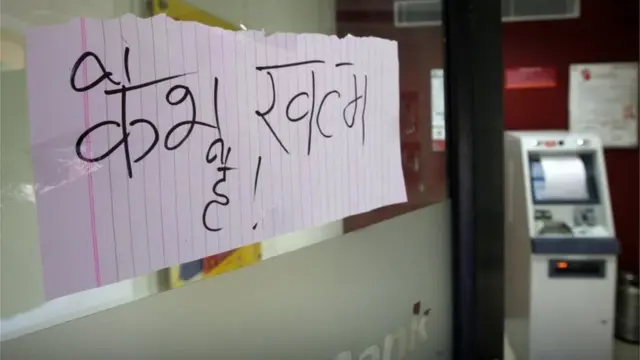 कैश खत्म
है !
ank